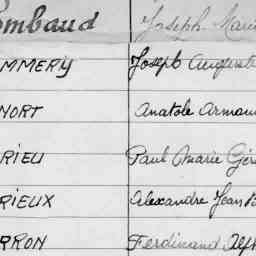 ombaud Joseph Marie
MMERY Joseph Auguste
NORT Anatole Arman
RIEU Paul Marie Gér
RIEUX Alexandre Jean B
RRON Ferdinand Alph